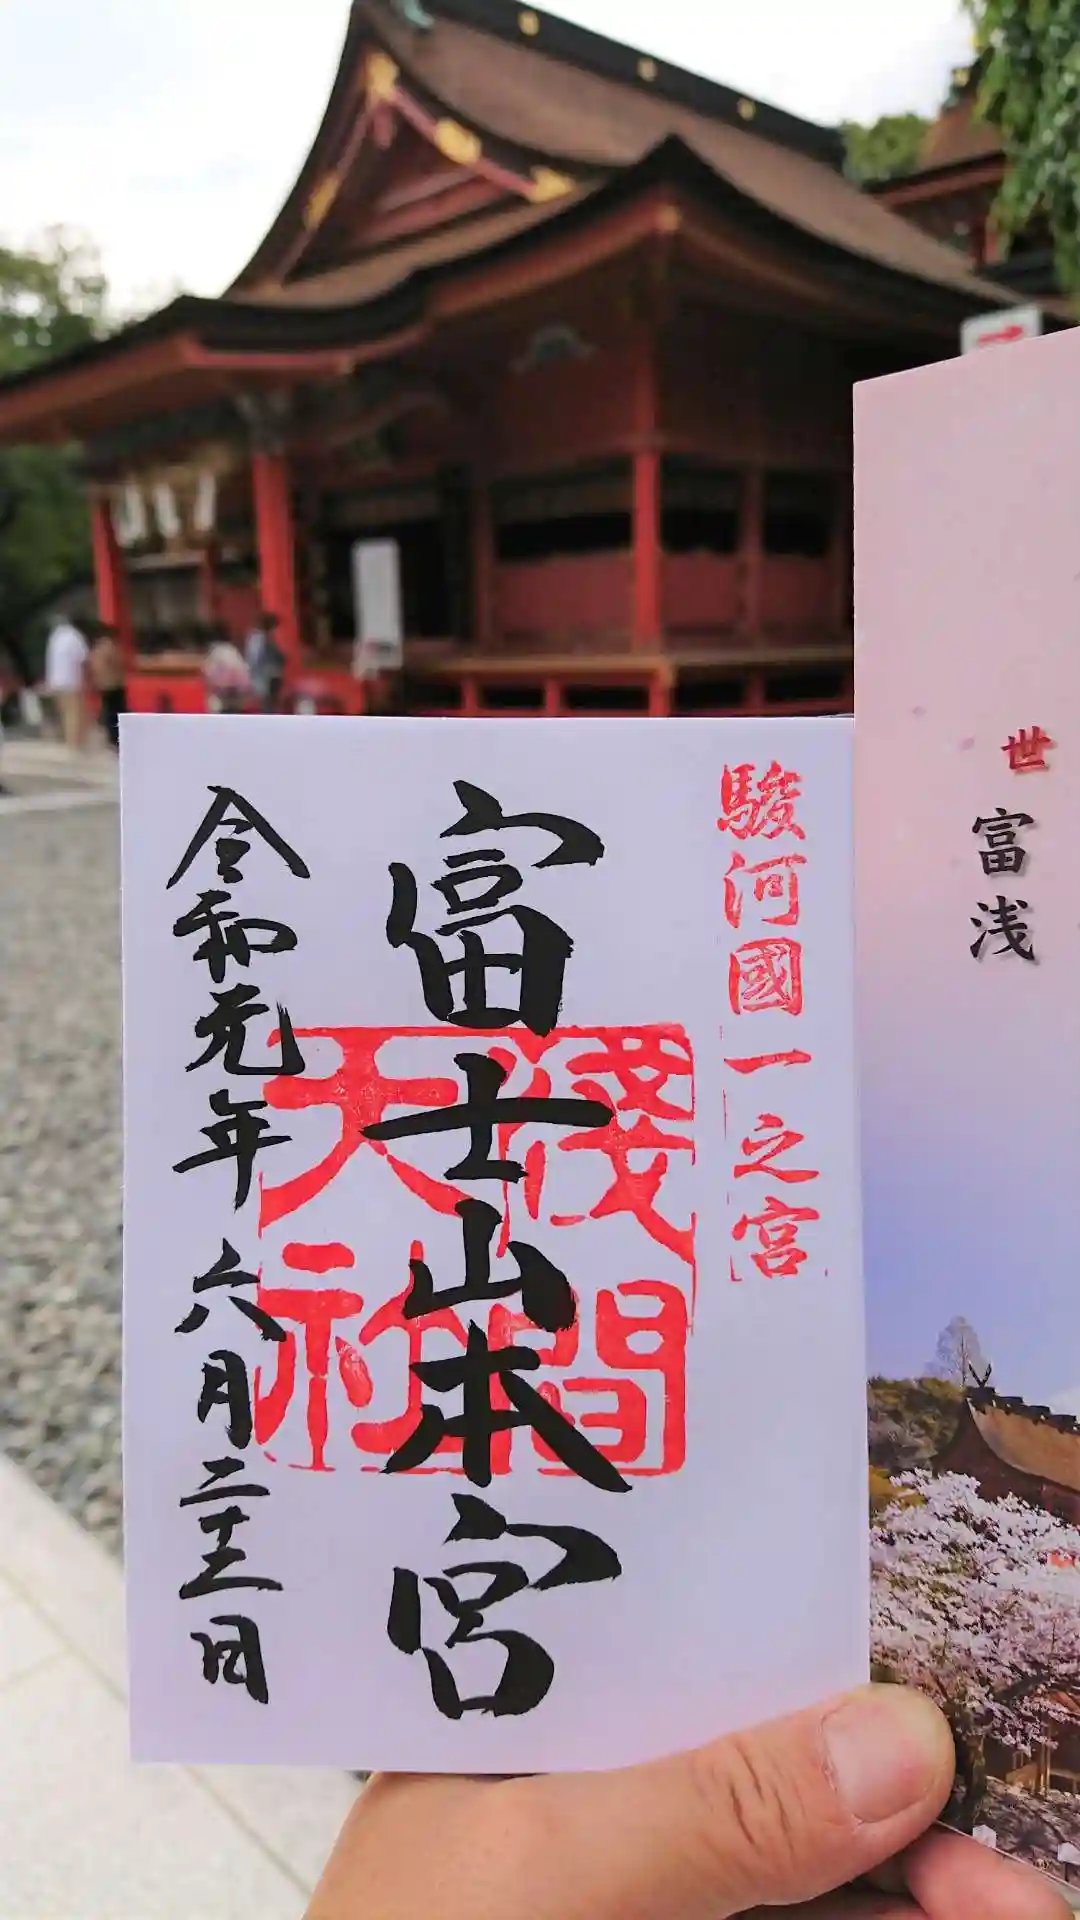 駿河國一之宮
富士山本宮
淺間
大社
令和元年六月二十三日
世
富
浅